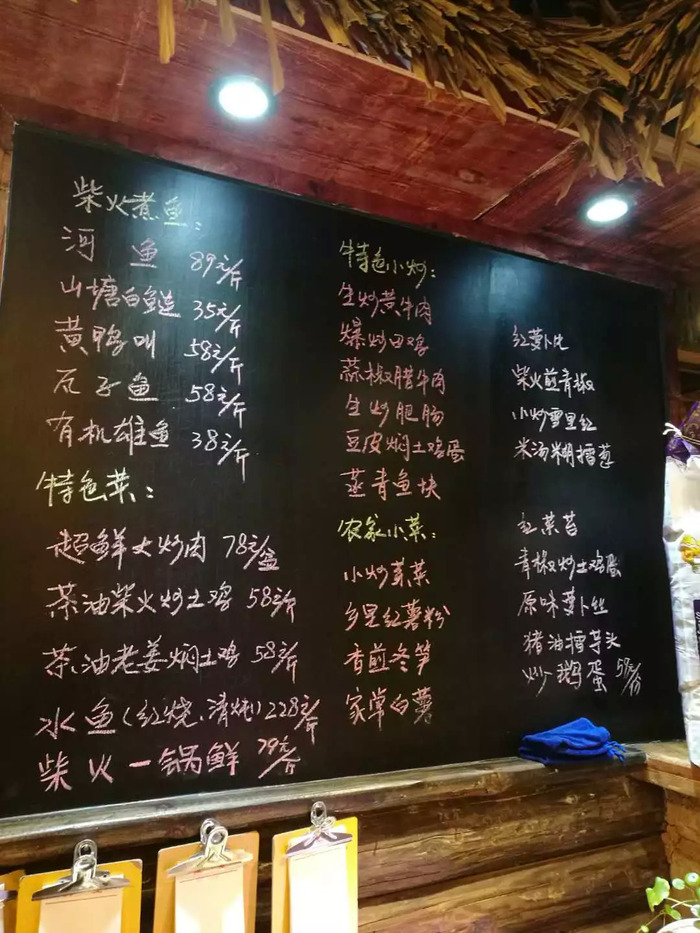 柴火煮鱼:
河 鱼 89元/斤
山塘白鲢 35元/斤
黄鸭叫 58元/斤
瓦子鱼 58元/斤
有机雄鱼 38元/斤
特色菜:
超鲜大炒肉 78元/盆
茶油柴火炒土鸡 58元/斤
茶油老姜焖土鸡 58元/斤
水鱼(红烧、清炖)228元/斤
柴火一锅鲜 79元/斤
特色小炒:
生炒黄牛肉
爆炒田鸡
蒜椒腊牛肉
生炒肥肠
豆皮焖土鸡蛋
蒸青鱼块
农家小菜:
小炒芽菜
乡里红薯粉
香煎冬笋
家常白薯
红萝卜丝
柴火煎青椒
小炒雪里红
米汤糊擂茄
红菜苔
青椒炒土鸡蛋
原味萝卜丝
猪油擂芋头
炒鹅蛋 58元/份